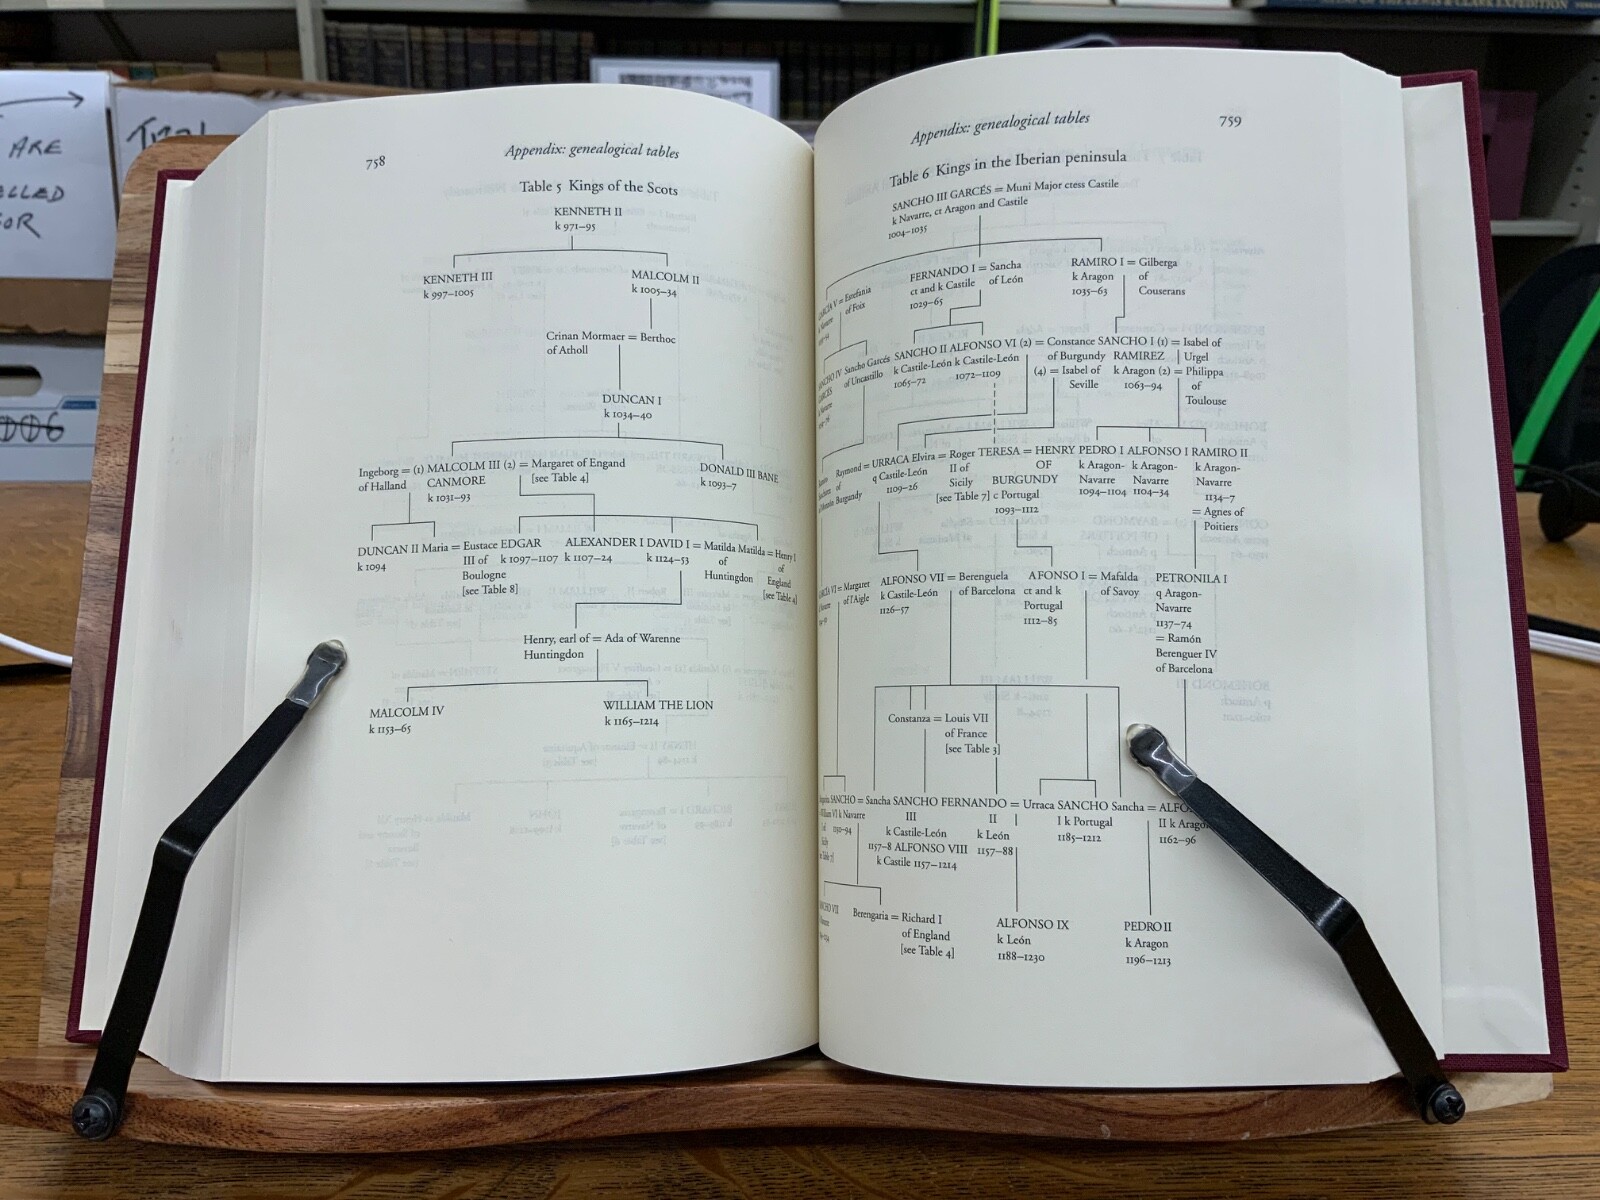 ARE
758
Appendix: genealogical tables
Table 5 Kings of the Scots
KENNETH II
k 971–95
KENNETH III
k 997–1005
MALCOLM II
k 1005–34
Crinan Mormaer = Berthoc
of Atholl
DUNCAN I
k 1034–40
Ingeborg = (1) MALCOLM III (2) = Margaret of Engand
of Halland CANMORE [see Table 4]
k 1031–93
DONALD III BANE
k 1093–7
DUNCAN II Maria = Eustace EDGAR ALEXANDER I DAVID I = Matilda Matilda = Henry I
k 1094 III of k 1097–1107 k 1107–24 k 1124–53 of of
Boulogne Huntingdon England
[see Table 8] [see Table 4]
Henry, earl of = Ada of Warenne
Huntingdon
MALCOLM IV
k 1153–65
WILLIAM THE LION
k 1165–1214
759
Appendix: genealogical tables
Table 6 Kings in the Iberian peninsula
SANCHO III GARCÉS = Muni Major ctess Castile
k Navarre, ct Aragon and Castile
1004–1035
= Estefania
of Foix
FERNANDO I = Sancha
ct and k Castile of León
1029–65
RAMIRO I = Gilberga
k Aragon of
1035–63 Couserans
Sancho Garcés SANCHO II ALFONSO VI (2) = Constance SANCHO I (1) = Isabel of
of Uncastillo k Castile-León k Castile-León of Burgundy RAMIREZ Urgel
1065–72 1072–1109 (4) = Isabel of k Aragon (2) = Philippa
Seville 1063–94 of
Toulouse
Raymond = URRACA Elvira = Roger TERESA = HENRY PEDRO I ALFONSO I RAMIRO II
of q Castile-León II of OF k Aragon- k Aragon- k Aragon-
Burgundy 1109–26 Sicily BURGUNDY Navarre Navarre Navarre
[see Table 7] c Portugal 1094–1104 1104–34 1134–7
1093–1112 = Agnes of
Poitiers
= Margaret ALFONSO VII = Berenguela AFONSO I = Mafalda PETRONILA I
of l'Aigle k Castile-León of Barcelona ct and k of Savoy q Aragon-
1126–57 Portugal Navarre
1112–85 1137–74
= Ramón
Berenguer IV
of Barcelona
Constanza = Louis VII
of France
[see Table 3]
SANCHO = Sancha SANCHO FERNANDO = Urraca SANCHO Sancha =
VI k Navarre III II I k Portugal II k Aragon
1150–94 k Castile-León k León 1185–1212 1162–96
1157–8 ALFONSO VIII 1157–88
k Castile 1157–1214
Berengaria = Richard I
of England
[see Table 4]
ALFONSO IX
k León
1188–1230
PEDRO II
k Aragon
1196–1213